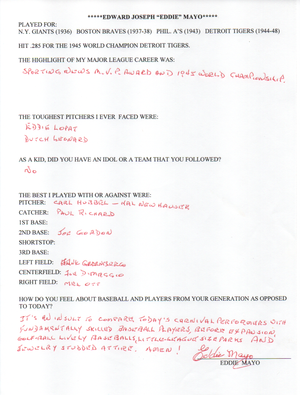 *****EDWARD JOSEPH "EDDIE" MAYO*****
PLAYED FOR:
N.Y. GIANTS (1936) BOSTON BRAVES (1937-38) PHIL. A'S (1943) DETROIT TIGERS (1944-48)
HIT .285 FOR THE 1945 WORLD CHAMPION DETROIT TIGERS.
THE HIGHLIGHT OF MY MAJOR LEAGUE CAREER WAS:
SPORTING NEWS M.V.P. AWARD AND 1945 WORLD CHAMPIONSHIP.
THE TOUGHEST PITCHERS I EVER FACED WERE:
EDDIE LOPAT
DUTCH LEONARD
AS A KID, DID YOU HAVE AN IDOL OR A TEAM THAT YOU FOLLOWED?
NO
THE BEST I PLAYED WITH OR AGAINST WERE:
PITCHER: CARL HUBBEL - HAL NEWHAUSER
CATCHER: PAUL RICHARD
1ST BASE:
2ND BASE: JOE GORDON
SHORTSTOP:
3RD BASE:
LEFT FIELD: HANK GREENBERG
CENTERFIELD: JOE D-MAGGIO
RIGHT FIELD: MEL OTT
HOW DO YOU FEEL ABOUT BASEBALL AND PLAYERS FROM YOUR GENERATION AS OPPOSED
TO TODAY?
IT'S AN INSULT TO COMPARE TODAY'S CARNIVAL PERFORMERS WITH
FUNDAMENTALLY SKILLED BASEBALL PLAYERS, BEFORE EXPANSION,
GOLF-BALL LIVELY BASEBALLS, LITTLE LEAGUE SIZE PARKS AND
JEWELRY STUDDED ATTIRE. AMEN!
Eddie Mayo
EDDIE MAYO